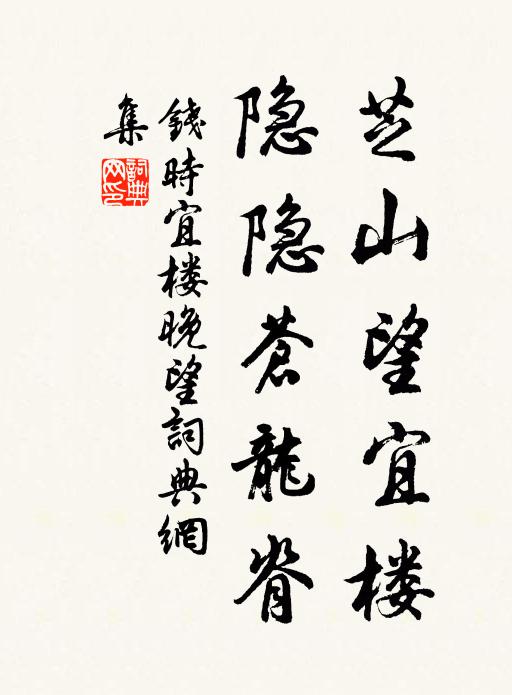 芝山望宜楼
隐隐苍龍脊
錢時宜楼晚望詞典網
集
詞典
网印